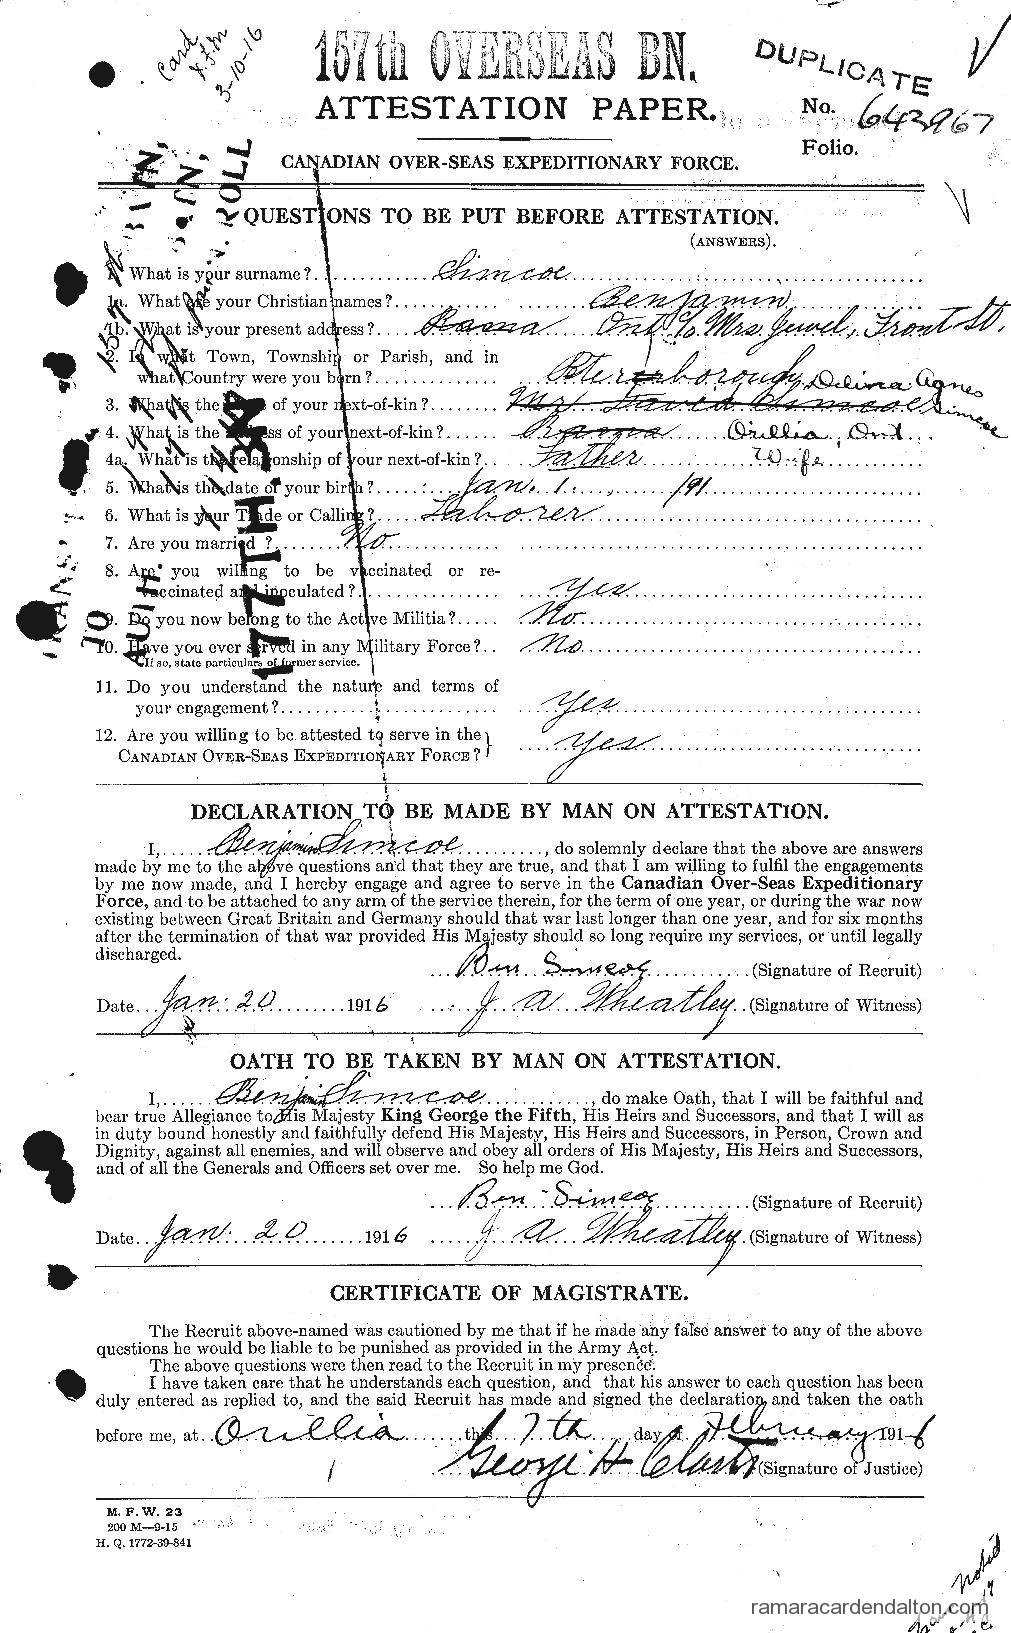 157th OVERSEAS BN.
DUPLICATE
Card
3-10-16
ATTESTATION PAPER.
No. 643967
Folio.
CANADIAN OVER-SEAS EXPEDITIONARY FORCE.
177TH. BN
QUESTIONS TO BE PUT BEFORE ATTESTATION.
(ANSWERS).
1. What is your surname?.. Simcoe
1a. What are your Christian names?.. Benjamin
1b. What is your present address?.. Rama Ont c/o Mrs Jewel, Front St.
2. In what Town, Township or Parish, and in
what Country were you born?.. Peterborough
Delina Agnes
3. What is the name of your next-of-kin?.. Mr David Simcoe Simcoe
4. What is the address of your next-of-kin?.. Rama Orillia, Ont.
4a. What is the relationship of your next-of-kin?.. Father Wife
5. What is the date of your birth?.. Jan. 1. 191
6. What is your Trade or Calling?.. Laborer
7. Are you married?.. No
8. Are you willing to be vaccinated or re-
vaccinated and inoculated?.. Yes
9. Do you now belong to the Active Militia?.. No.
10. Have you ever served in any Military Force?.. No
If so, state particulars of former service.
11. Do you understand the nature and terms of
your engagement?.. Yes
12. Are you willing to be attested to serve in the
CANADIAN OVER-SEAS EXPEDITIONARY FORCE? Yes
DECLARATION TO BE MADE BY MAN ON ATTESTATION.
I, Benjamin Simcoe, do solemnly declare that the above are answers
made by me to the above questions and that they are true, and that I am willing to fulfil the engagements
by me now made, and I hereby engage and agree to serve in the Canadian Over-Seas Expeditionary
Force, and to be attached to any arm of the service therein, for the term of one year, or during the war now
existing between Great Britain and Germany should that war last longer than one year, and for six months
after the termination of that war provided His Majesty should so long require my services, or until legally
discharged.
Ben Simcoe (Signature of Recruit)
Date Jan. 20 1916 J A Wheatley (Signature of Witness)
OATH TO BE TAKEN BY MAN ON ATTESTATION.
I, Benjamin Simcoe, do make Oath, that I will be faithful and
bear true Allegiance to His Majesty King George the Fifth, His Heirs and Successors, and that I will as
in duty bound honestly and faithfully defend His Majesty, His Heirs and Successors, in Person, Crown and
Dignity, against all enemies, and will observe and obey all orders of His Majesty, His Heirs and Successors,
and of all the Generals and Officers set over me. So help me God.
Ben Simcoe (Signature of Recruit)
Date Jan. 20 1916 J A Wheatley (Signature of Witness)
CERTIFICATE OF MAGISTRATE.
The Recruit above-named was cautioned by me that if he made any false answer to any of the above
questions he would be liable to be punished as provided in the Army Act.
The above questions were then read to the Recruit in my presence.
I have taken care that he understands each question, and that his answer to each question has been
duly entered as replied to, and the said Recruit has made and signed the declaration and taken the oath
before me, at Orillia this 7th day of February 1916
George H Clark (Signature of Justice)
M. F. W. 23
200 M—9-15
H. Q. 1772-39-841
ramaracardendalton.com